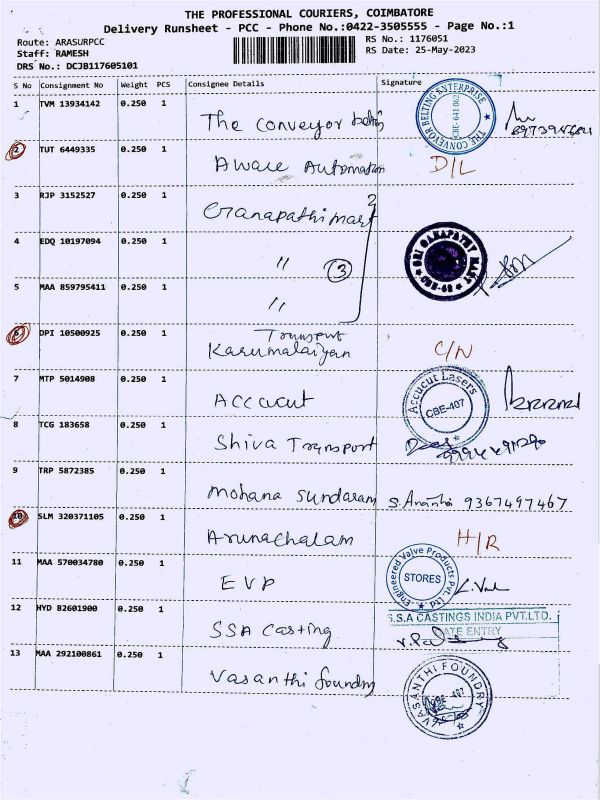 THE PROFESSIONAL COURIERS, COIMBATORE
Delivery Runsheet - PCC - Phone No.:0422-3505555 - Page No.:1
Route: ARASURPCC
Staff: RAMESH
DRS No.: DCJB117605101
RS No.: 1176051
RS Date: 25-May-2023
S No Consignment No Weight PCS Consignee Details Signature
1 TVM 13934142 0.250 1 The conveyor belting
THE CONVEYOR BELTING ENTERPRISE
CBE-641 062
2 TUT 6449335 0.250 1 Aware Automation D/L
3 RJP 3152527 0.250 1 Ganapathi mart
4 EDQ 10197094 0.250 1 〃 3
SRI GANAPATHY MART
5 MAA 859795411 0.250 1 〃
6 DPI 10500925 0.250 1 Transport
Karumalaiyan C/N
7 MTP 5014908 0.250 1 Accucut
Accucut Lasers
CBE-407
8 TCG 183658 0.250 1 Shiva Transport
9 TRP 5872385 0.250 1 Mohana Sundaram 9367497467
10 SLM 320371105 0.250 1 Arunachalam H/R
11 MAA 570034780 0.250 1 EVP
Engineered Valve Products Pvt. Ltd.
STORES
12 HYD 82601900 0.250 1 SSA Casting
S.S.A CASTINGS INDIA PVT.LTD.
DATE ENTRY
13 MAA 292100861 0.250 1 Vasanthi foundry
VASANTHI FOUNDRY
CBE-407